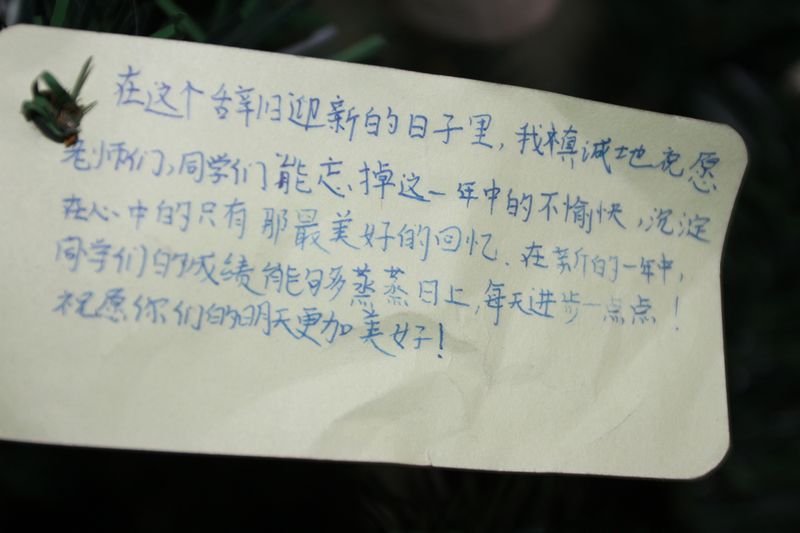 在这个辞旧迎新的日子里，我祯诚地祝愿
老师们，同学们能忘掉这一年中的不愉快，沉淀
在心中的只有那最美好的回忆．在新的一年中，
同学们的成绩能够蒸蒸日上，每天进步一点点！
祝愿你们的明天更加美好！